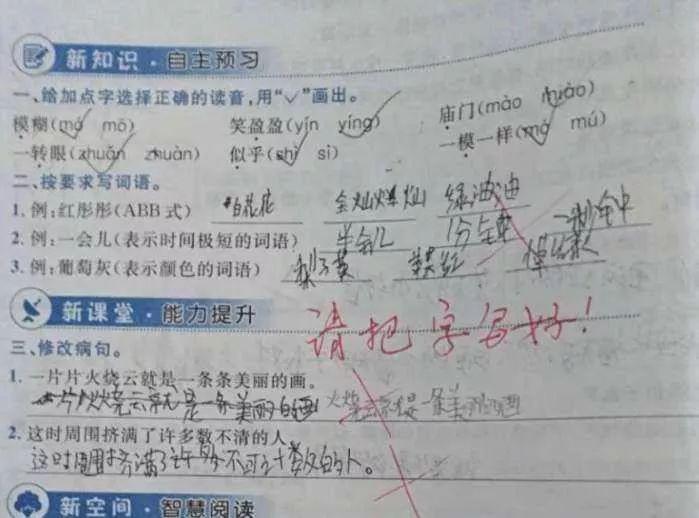 新知识·自主预习
一、给加点字选择正确的读音,用“✓”画出。
模糊(mó mō) 笑盈盈(yín yíng) 庙门(mào miào)
一转眼(zhuǎn zhuàn) 似乎(shì sì) 一模一样(mó mú)
二、按要求写词语。
1. 例:红彤彤(ABB 式) 白花花 金灿灿 绿油油
2. 例:一会儿(表示时间极短的词语) 半会儿 1分钟 一秒钟
3. 例:葡萄灰(表示颜色的词语) 梨子黄
新课堂·能力提升
请把字写好!
三、修改病句。
1. 一片片火烧云就是一条条美丽的画。
一片火烧云就是一条美丽的画 火烧云就是一条美丽的画
2. 这时周围挤满了许多数不清的人。
这时周围挤满了许多不可计数的人。
新空间·智慧阅读